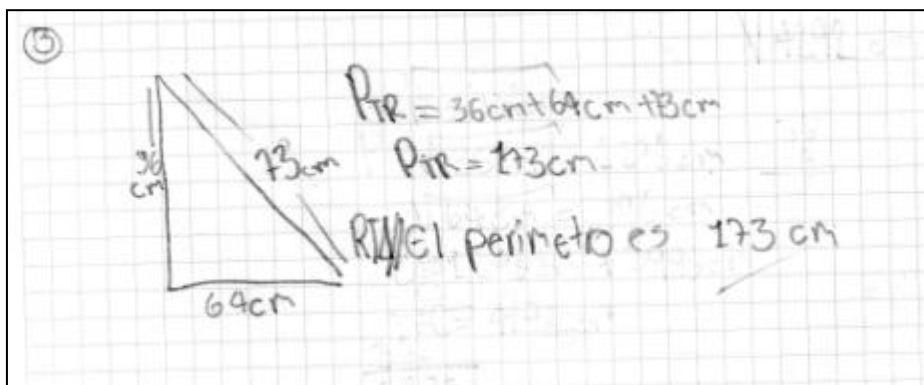 3
36 cm
73cm
64cm
P TR = 36cm+64cm+73cm
P TR = 173cm
R// El perimetro es 173 cm